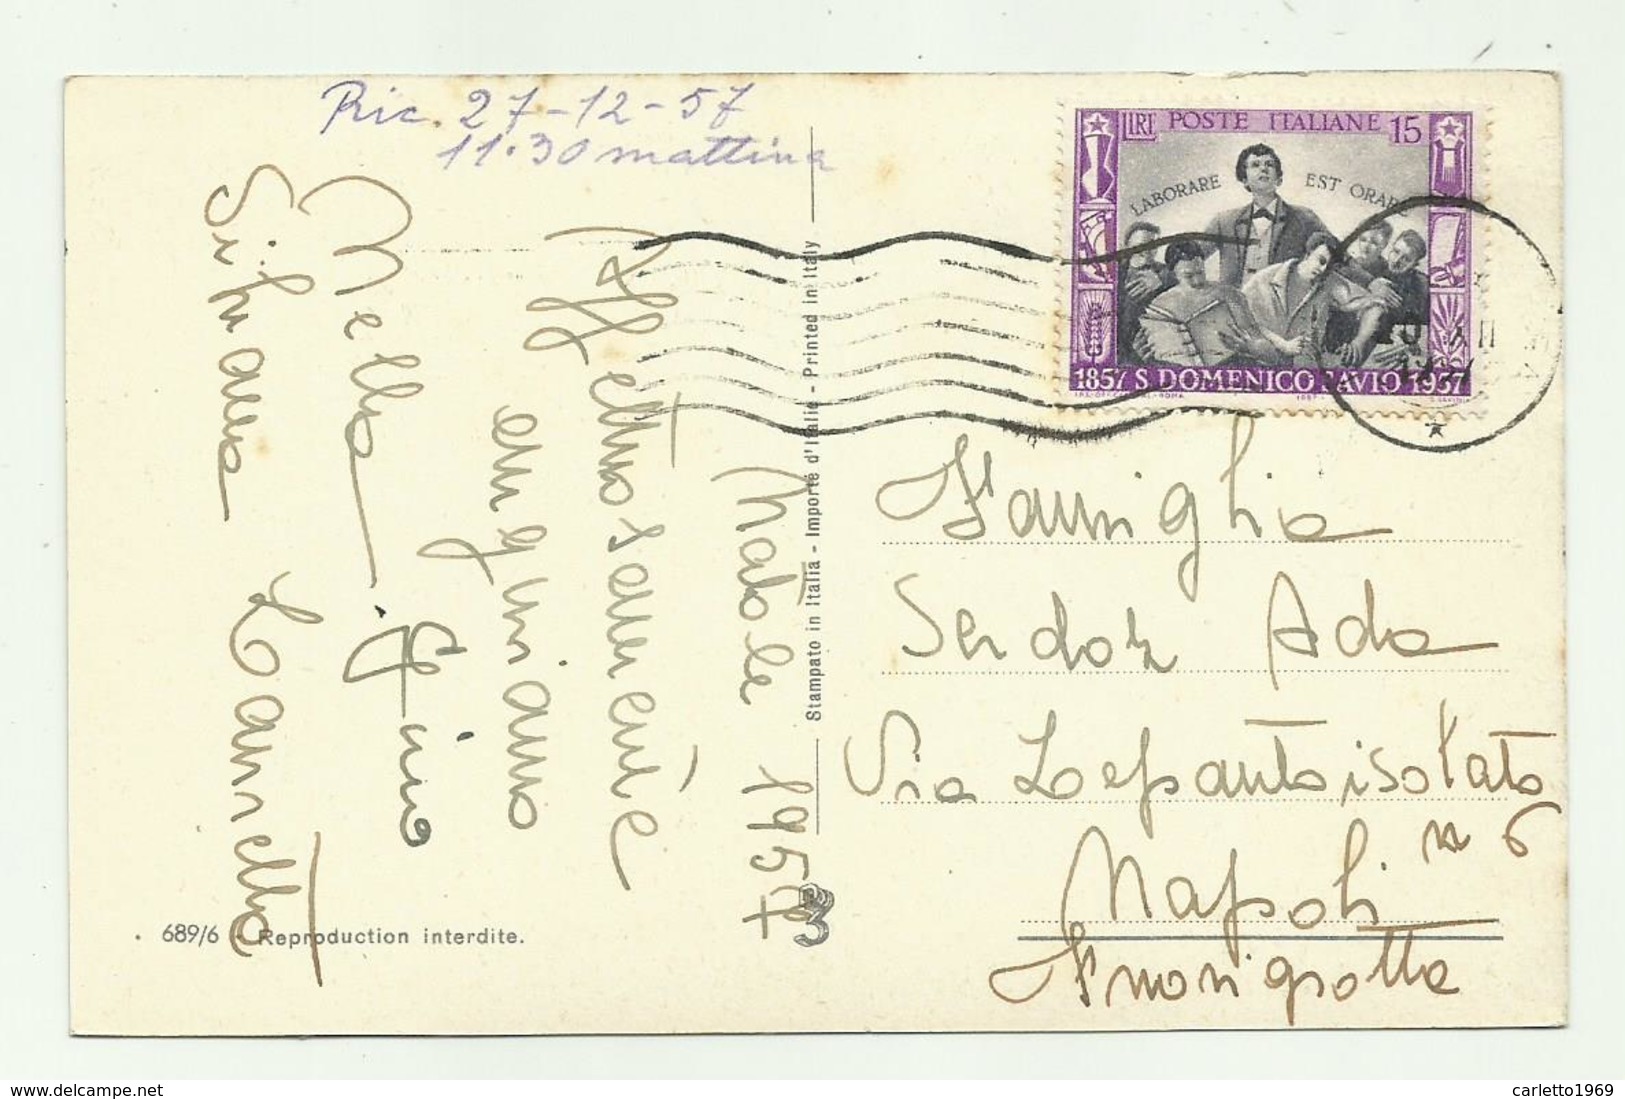 Ric. 27-12-57
11.30 mattina
LIRE POSTE ITALIANE 15
LABORARE EST ORARE
1857 S. DOMENICO SAVIO 1957
Natale 1957
Affettuosamente
auguriamo
Nella. Gino
Silvana
Stampato in Italia - Importé d'Italie - Printed in Italy
Famiglia
Serdoz Ada
Via Lepanto isolato
n 6
Napoli
Fuorigrotta
689/6 Reproduction interdite.
3
carletto1969